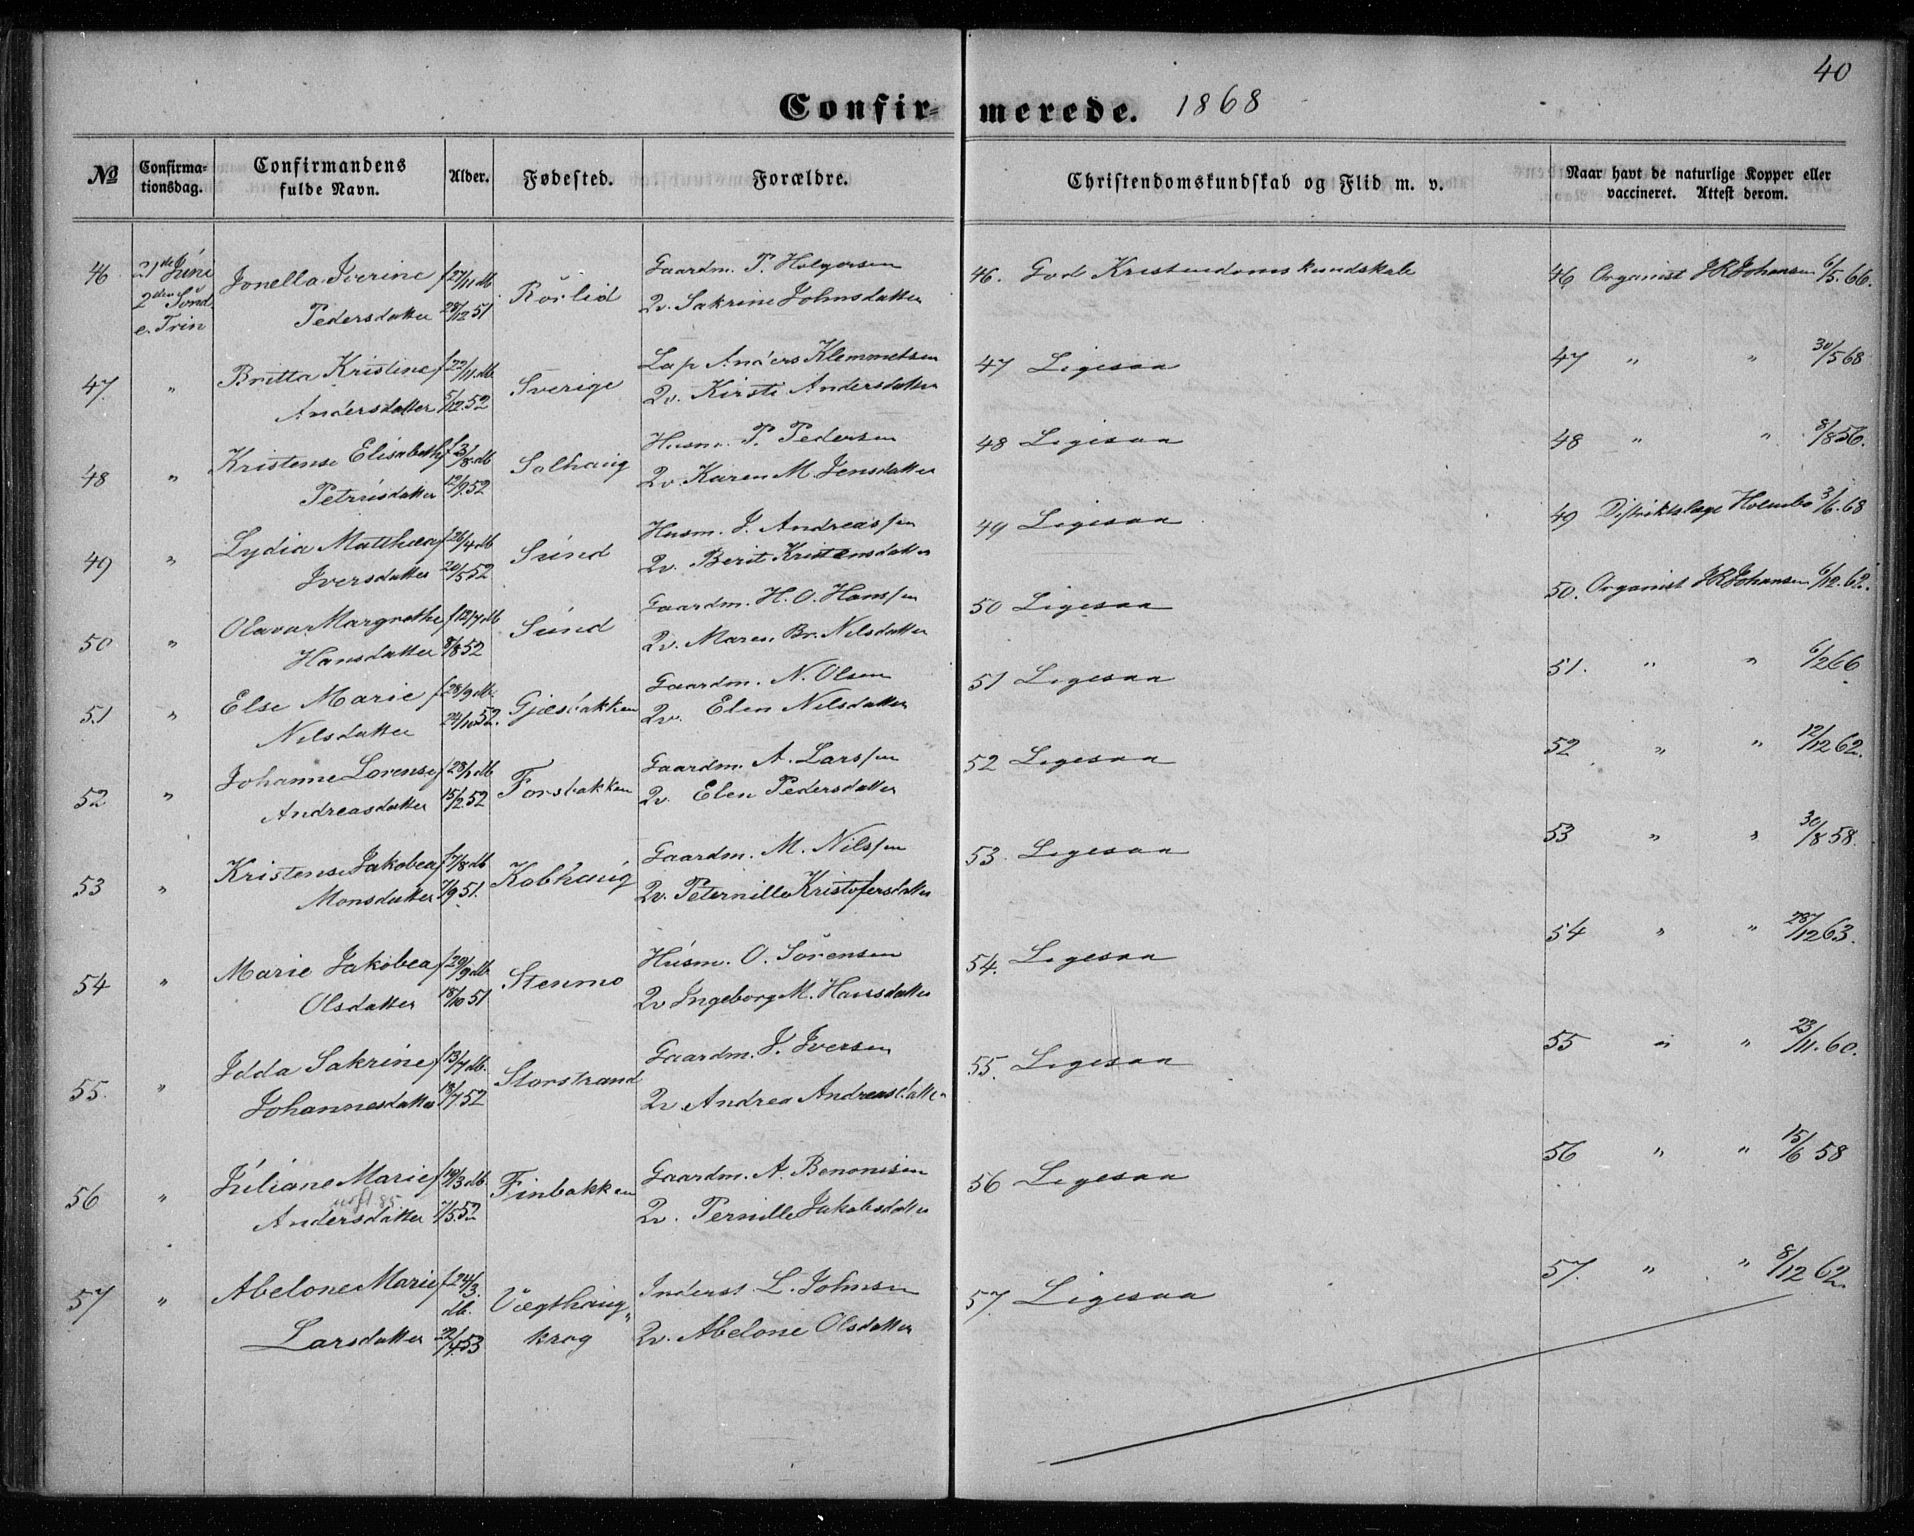 40
Confirmerede. 1868
No
Confirmationsdag.
Confirmandens fulde Navn.
Alder.
Fødested.
Forældre.
Christendomskundskab og Flid m. v.
Naar havt de naturlige Kopper eller vaccineret. Attest derom.
46 21de Júni 2den Sönd. e. Trin
Jonella Iverine
Pedersdatter
f 27/11 db 28/12 51
Rörlid
Gaardm. P. Holgersen
Qv. Sakrine Johnsdatter
46. God Kristendomskundskab
46 Organist JRJohansen 6/5. 66.
47. "
Britta Kristine
Andersdatter
f 22/11. db 5/12. 52
Sverige
Lap Anders Klemmetsen
Qv. Kirsti Andersdatter
47 Ligesaa
47 " " 30/5 68
48 "
Kristense Elisabeth
Petrúsdatter
f 3/8. db 12/9. 52
Solhaúg
Husm. P. Pedersen
Qv. Karen M. Jensdatter
48 Ligesaa
48 " " 8/8 56.
49 "
Lydia Matthea
Iversdatter
f 26/4 db 20/5 52
Súnd
Husm. I. Andreassen
Qv. Berit Kristensdatter
49 Ligesaa
49 Distriktslæge Holmbo 3/6. 68
50 "
Olava Margrethe
Hansdatter
f 12/7 db 8/8 52
Súnd
Gaardm. H. O. Hanssen
Qv. Maren Br. Nilsdatter
50 Ligesaa
50. Organist JRJohansen 6/12. 62.
51 "
Else Marie
Nilsdatter
f 28/9 db. 24/10 52.
Gjæsbakken
Gaardm. N. Olsen
Qv. Elen Nilsdatter
51 Ligesaa
51. " " 6/2 66
52 "
Johanne Lorense
Andreasdatter
f 23/1 db 15/2. 52
Forsbakken
Gaardm. A. Larssen
Qv. Elen Pedersdatter
52 Ligesaa
52 " " 12/12 62.
53 "
Kristense Jakobea
Monsdatter
f 7/8 db 7/9 51.
Kobhaúg
Gaardm. M. Nilssen
Qv. Peternille Kristofersdatter
53. Ligesaa
53 " " 30/8 58.
54 "
Marie Jakobea
Olsdatter
f 20/9 db 18/10 51
Stenmo
Húsm. O. Sörensen
Qv Ingeborg M. Hansdatter
54. Ligesaa
54 " " 28/12 63.
55. "
Idda Sakrine
Johannesdatter
f 13/7 db. 18/7 52
Storstrand
Gaardm. J. Iversen
Qv Andrea Andreasdatter
55. Ligesaa
55 " " 23/11. 60.
56 "
Júliane Marie
Andersdatter
f 19/3 db. 7/5 52
Finbakken
Gaardm. A. Benonisen
Qv. Pernille Jakobsdatter
56 Ligesaa
56 " " 15/6 58
57 "
Abelone Marie
Larsdatter
f 24/3. db. 22/4 53
Vægthaúg"
krog
Inderst L. Johnsen
Qv. Abelone Olsdatter
57. Ligesaa
57. " " 8/12 62.